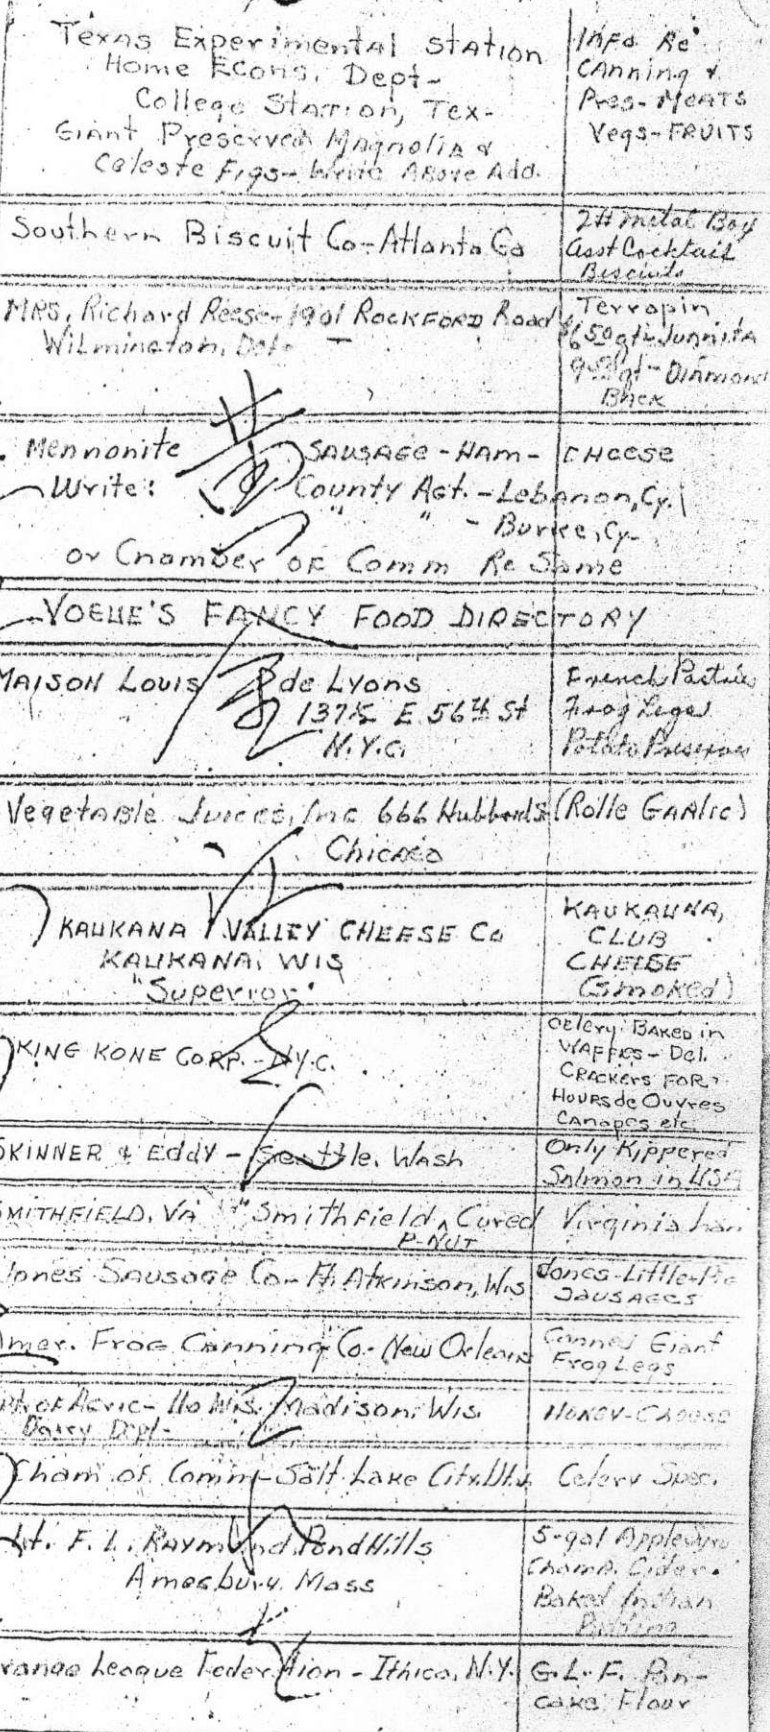 Texas Experimental Station
Home Econs. Dept-
College Station, Tex-
Giant Preserved Magnolia &
Celeste Figs- Write Above Add.
Info Re
Canning &
Pres-MEATS
Vegs-FRUITS
Southern Biscuit Co-Atlanta Ga
2# metal Box
asst Cocktail
Biscuits
MRS. Richard Reese-1901 ROCKFORD Road
Wilmington, Del-
Terrapin
qt-
qt- Diamond
Back
Mennonite SAUSAGE - HAM- CHEESE
Write: County Agt. - Lebanon, Cy.
" " - Burke, Cy-
or Chamber of Comm Re Same
VOGUE'S FANCY FOOD DIRECTORY
MAISON LOUIS de Lyons
137½ E 56th St
N.Y.C.
French Pastries
Frog Legs
Potato Preserves
Vegetable Juices, Inc 666 (Rolle Garlic)
Chicago
KAUKANA VALLEY CHEESE Co
KAUKANA, WIS
"Superior"
KAUKAUNA,
CLUB
CHEESE
(Smoked)
KING KONE CORP.-N.Y.C.
Celery. BAKED in
WAFFLES- Del.
CRACKERS FOR
HOURS de OUVRES
CANAPES etc
SKINNER & Eddy - Seattle, Wash
Only Kippered
Salmon in USA
SMITHFIELD, VA "Smithfield Cured Virginia ham
P-NUT
Jones Sausage Co- Ft. Atkinson, Wis
Jones-Little-Pig
SAUSAGES
Amer. Frog Canning Co- New Orleans
Canned Giant
Frog Legs
of Agric- Wis. Madison. Wis. HONEY-Cheese
Dairy Dept-
Cham of Comm-Salt Lake City, Ut. Celery Spec.
F. L. Raymond. Pond Hills
Amesbury. Mass
5-gal Apple
Champ. Cider.
Baked Indian
Pudding
League Federation - Ithica, N.Y.
G.L.F. Pan-
cake Flour